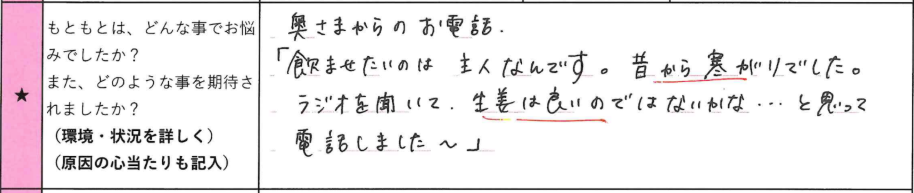 ★
もともとは、どんな事でお悩
みでしたか？
また、どのような事を期待さ
れましたか？
（環境・状況を詳しく）
（原因の心当たりも記入）
奥さまからのお電話.
「飲ませたいのは 主人なんです。昔から寒がりでした。
ラジオを聞いて、生姜は良いのではないかな…と思って
電話しました～」